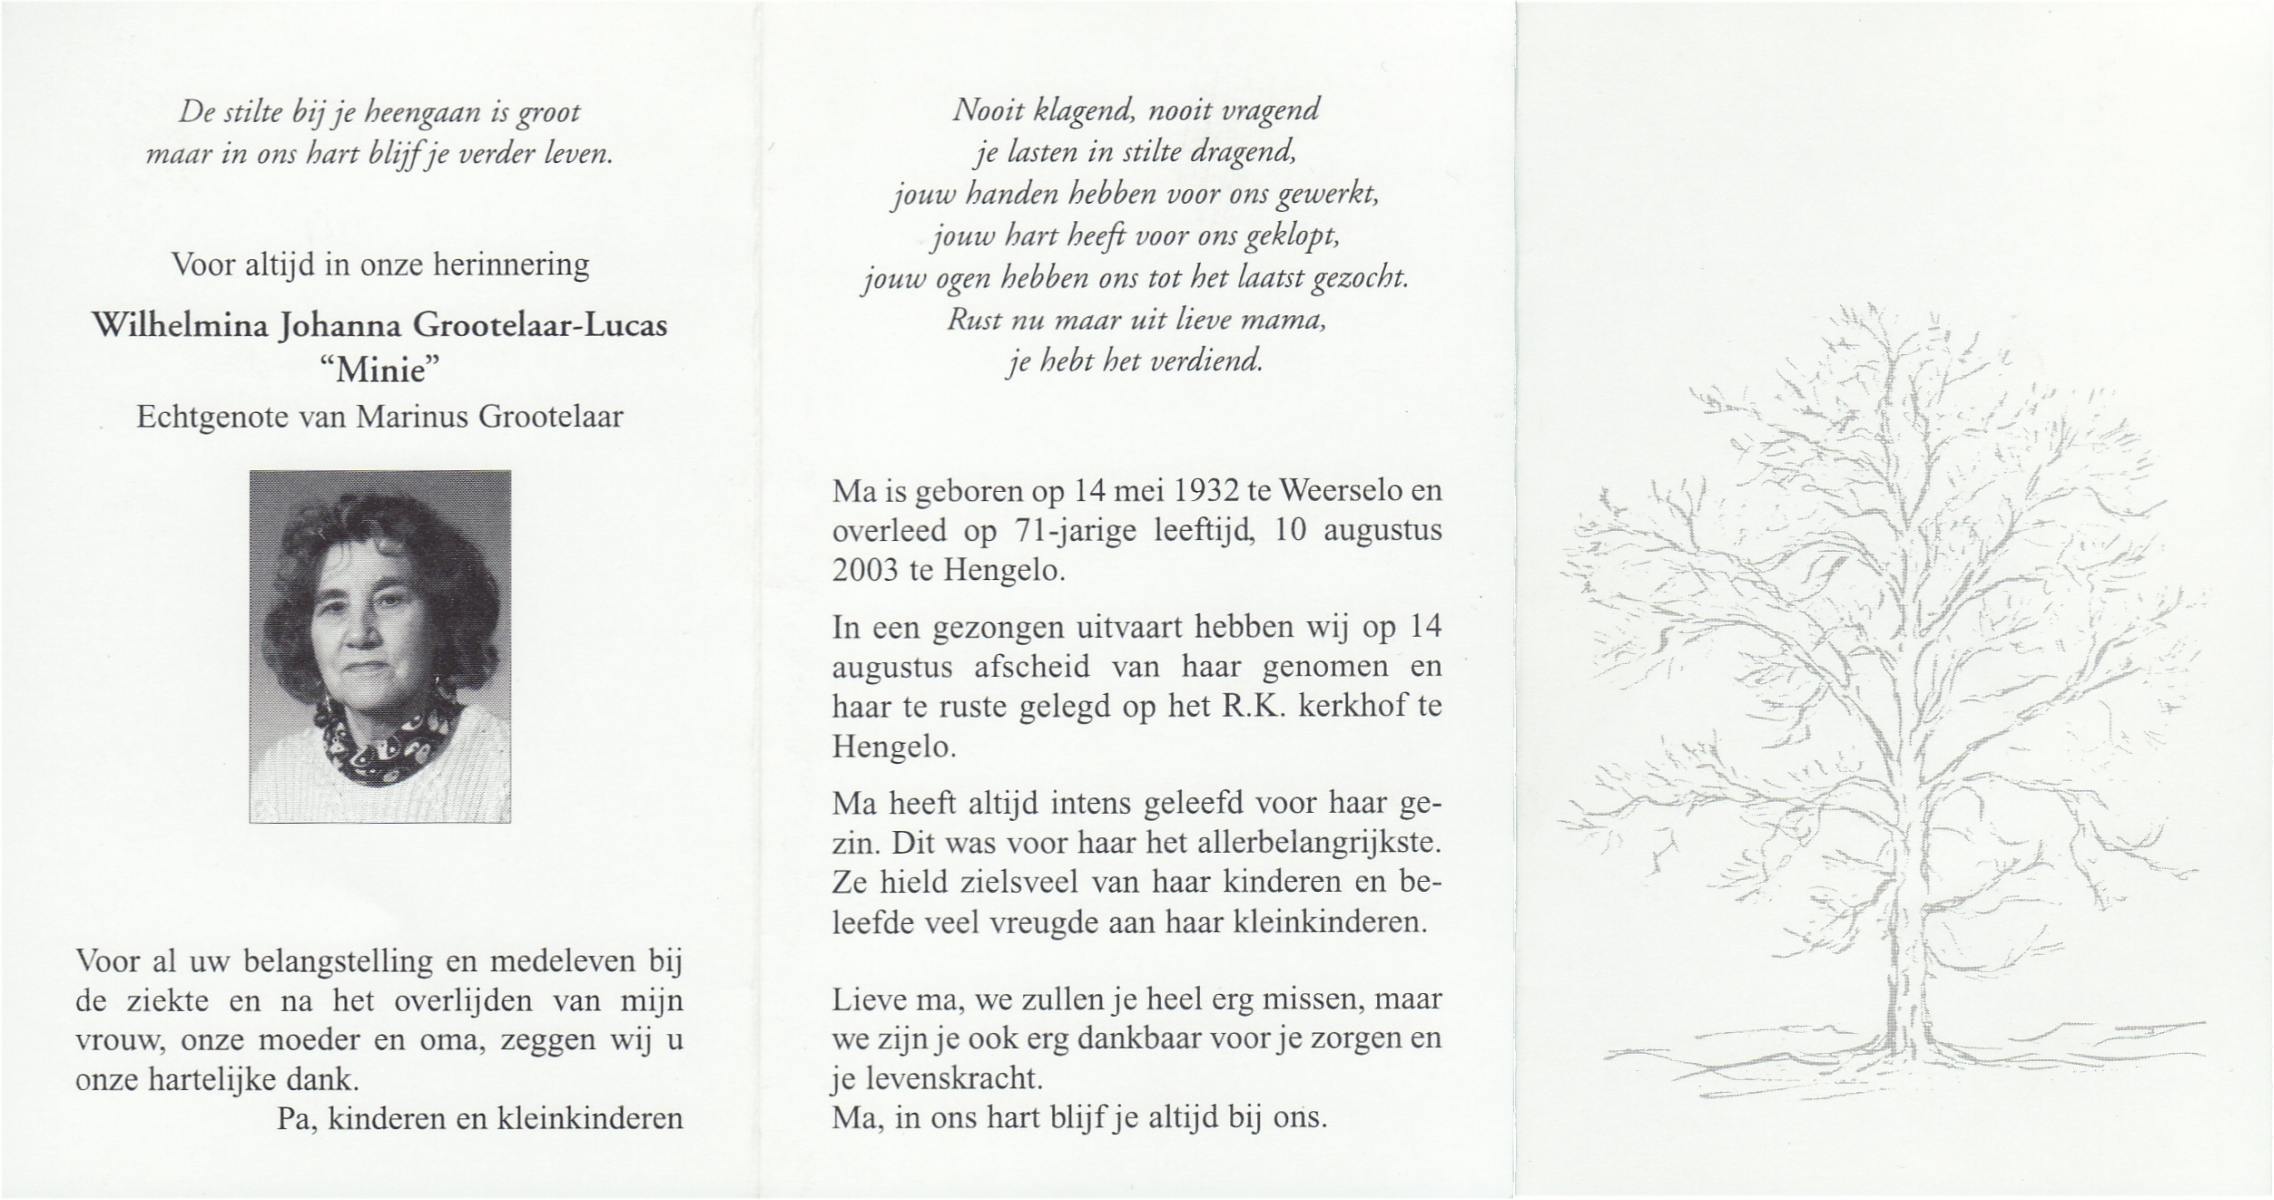 De stilte bij je heengaan is groot
maar in ons hart blijf je verder leven.
Voor altijd in onze herinnering
Wilhelmina Johanna Grootelaar-Lucas
“Minie”
Echtgenote van Marinus Grootelaar
Voor al uw belangstelling en medeleven bij
de ziekte en na het overlijden van mijn
vrouw, onze moeder en oma, zeggen wij u
onze hartelijke dank.
Pa, kinderen en kleinkinderen
Nooit klagend, nooit vragend
je lasten in stilte dragend,
jouw handen hebben voor ons gewerkt,
jouw hart heeft voor ons geklopt,
jouw ogen hebben ons tot het laatst gezocht.
Rust nu maar uit lieve mama,
je hebt het verdiend.
Ma is geboren op 14 mei 1932 te Weerselo en
overleed op 71-jarige leeftijd, 10 augustus
2003 te Hengelo.
In een gezongen uitvaart hebben wij op 14
augustus afscheid van haar genomen en
haar te ruste gelegd op het R.K. kerkhof te
Hengelo.
Ma heeft altijd intens geleefd voor haar ge-
zin. Dit was voor haar het allerbelangrijkste.
Ze hield zielsveel van haar kinderen en be-
leefde veel vreugde aan haar kleinkinderen.
Lieve ma, we zullen je heel erg missen, maar
we zijn je ook erg dankbaar voor je zorgen en
je levenskracht.
Ma, in ons hart blijf je altijd bij ons.